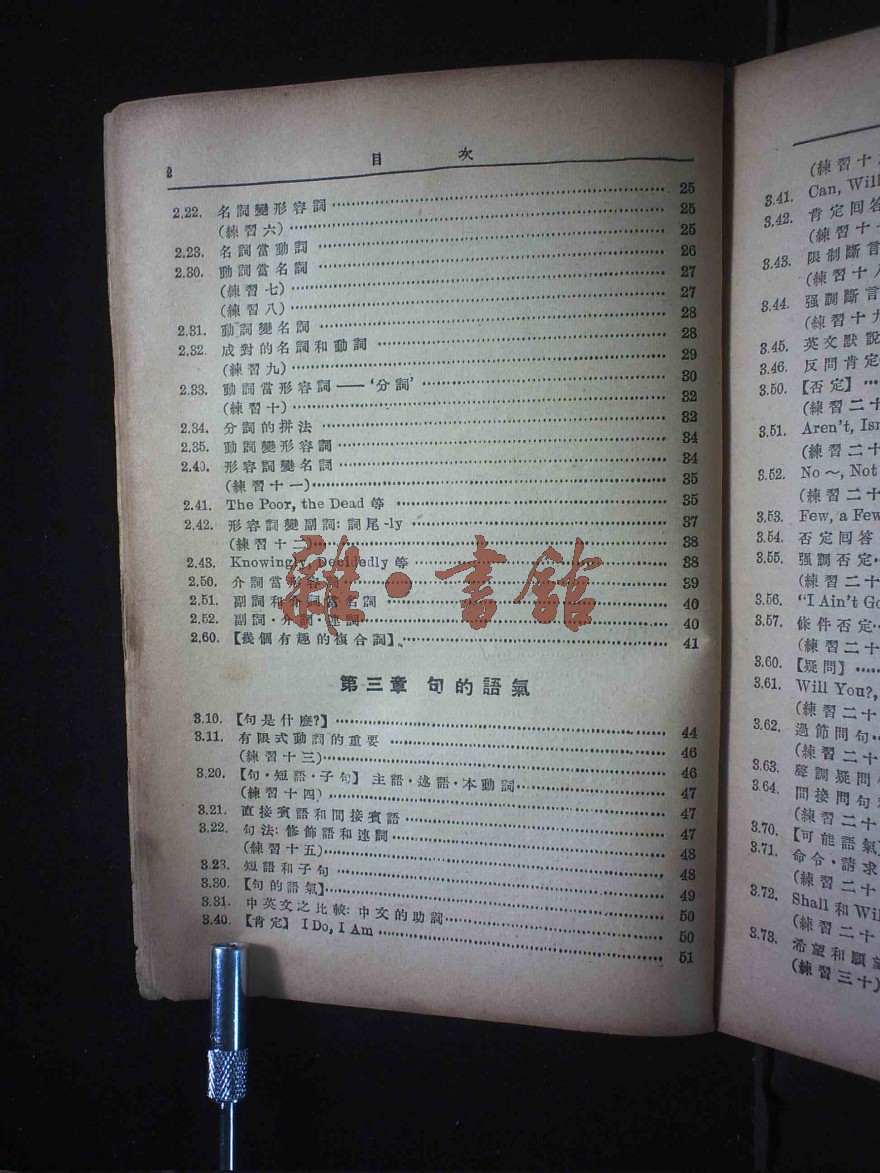 2 目次
2.22. 名詞變形容詞 25
(練習六) 25
2.23. 名詞當動詞 25
2.30. 動詞當名詞 26
(練習七) 27
(練習八) 27
2.31. 動詞變名詞 28
2.32. 成對的名詞和動詞 28
(練習九) 29
2.33. 動詞當形容詞——‘分詞’ 30
(練習十) 32
2.34. 分詞的拼法 32
2.35. 動詞變形容詞 34
2.40. 形容詞變名詞 34
(練習十一) 35
2.41. The Poor, the Dead 等 35
2.42. 形容詞變副詞: 詞尾 -ly 37
(練習十二) 38
2.43. Knowingly, Decidedly 等 38
2.50. 介詞當形容詞 39
2.51. 副詞和介詞當名詞 40
2.52. 副詞·介詞·連詞 40
2.60. 【幾個有趣的複合詞】 41
第三章 句的語氣
3.10. 【句是什麽?】 44
3.11. 有限式動詞的重要 46
(練習十三) 46
3.20. 【句·短語·子句】 主語·述語·本動詞 47
(練習十四) 47
3.21. 直接賓語和間接賓語 47
3.22. 句法: 修飾語和連詞 48
(練習十五) 48
3.23. 短語和子句 49
3.30. 【句的語氣】 50
3.31. 中英文之比較: 中文的助詞 50
3.40. 【肯定】 I Do, I Am 51
雜·書館
(練習十
3.41. Can, Will
3.42. 肯定回答
(練習十
3.43. 限制斷言
(練習十八
3.44. 强調斷言
(練習十九
3.45. 英文默說
3.46. 反問肯定
3.50. 【否定】
(練習二十
3.51. Aren't, Isn
(練習二十
3.52. No ～, Not
(練習二十
3.53. Few, a Few
3.54. 否定回答
3.55. 强調否定
(練習二十
3.56. “I Ain't Go
3.57. 條件否定
(練習二十
3.60. 【疑問】
3.61. Will You?,
(練習二十
3.62. 過節問句
(練習二十
3.63. 聲調疑問
3.64. 間接問句
(練習二十
3.70. 【可能語氣】
3.71. 命令·請求
(練習二十
3.72. Shall 和 Wil
(練習二十
3.73. 希望和願望
(練習三十)